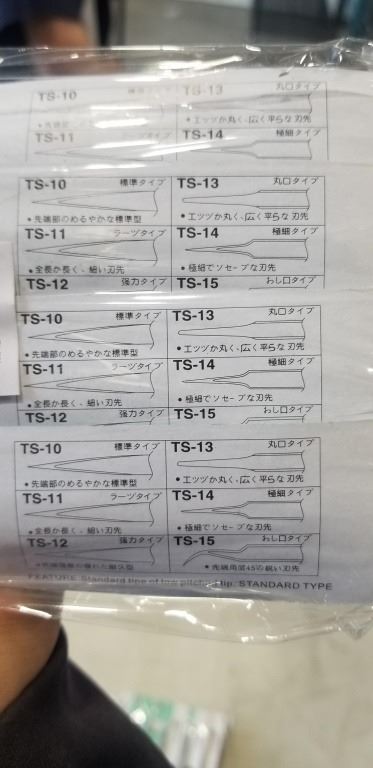 TS-10 TS-13 丸口タイプ
•エッヅか丸く、広く平らな刃先
TS-11 ラーツタイプ TS-14 極細タイプ
TS-10 標準タイプ TS-13 丸口タイプ
•先端部のめるやかな標準型 •エッヅか丸く、広く平らな刃先
TS-11 ラーツタイプ TS-14 極細タイプ
•全長か長く、細い刃先 •極細でソセーブな刃先
TS-12 強力タイプ TS-15 わし口タイプ
TS-10 標準タイプ TS-13 丸口タイプ
•先端部のめるやかな標準型 •エッヅか丸く、広く平らな刃先
TS-11 ラーツタイプ TS-14 極細タイプ
•全長か長く、細い刃先 •極細でソセーブな刃先
TS-12 強力タイプ TS-15 わし口タイプ
TS-10 標準タイプ TS-13 丸口タイプ
•先端部のめるやかな標準型 •エッヅか丸く、広く平らな刃先
TS-11 ラーツタイプ TS-14 極細タイプ
•全長か長く、細い刃先 •極細でソセーブな刃先
TS-12 強力タイプ TS-15 わし口タイプ
•先端角度45の鋭い刃先
FEATURE: Standard tipe of low pitched tip. STANDARD TYPE